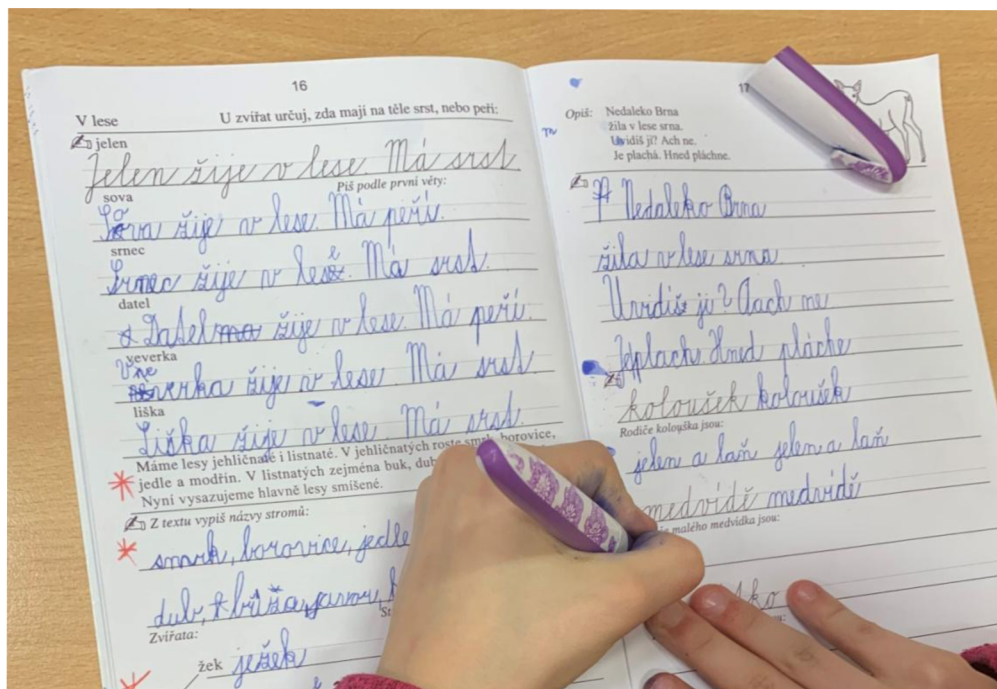 16
V lese U zvířat určuj, zda mají na těle srst, nebo peří:
jelen
Jelen žije v lese. Má srst
Piš podle první věty:
sova
Sova žije v lese. Má peří.
srnec
Srnec žije v lese. Má srst.
datel
Datel ma žije v lese. Má peří.
veverka
Veverka žije v lese. Má srst.
liška
Liška žije v lese. Má srst.
Máme lesy jehličnaté i listnaté. V jehličnatých roste smrk, borovice,
jedle a modřín. V listnatých zejména buk, dub
Nyní vysazujeme hlavně lesy smíšené.
Z textu vypiš názvy stromů:
smrk, borovice, jedle
dub,
St
Zvířata:
žek ježek
17
Opiš: Nedaleko Brna
žila v lese srna.
Uvidíš ji? Ach ne.
Je plachá. Hned pláchne.
Nedaleko Brna
žila v lese srna
Uvidiš ji? Aach ne
Jeplach. Hned pláche
koloušek koloušek
Rodiče kolouška jsou:
jelen a laň jelen a laň
medvídě medvídě
malého medvídka jsou:
sko